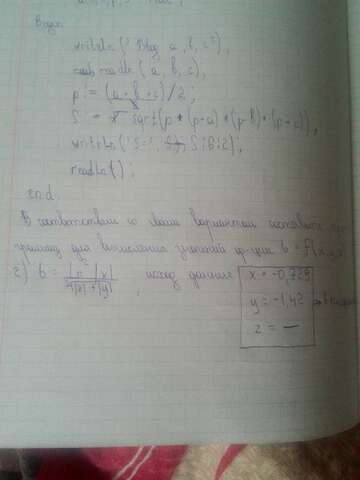 Begin
writeln('Vvog a, b, c');
readln (a, b, c);
p:=(a+b+c)/2;
S:= sqrt(p*(p-a)*(p-b)*(p-c));
writeln('S=', S:8:2);
readln();
end.
В соответствии со своим вариантом составить
грамму для вычисления значений ф-ции b = f(x,y,z)
2) b = , исход данные x = -0,723
y = -1,42
z = —